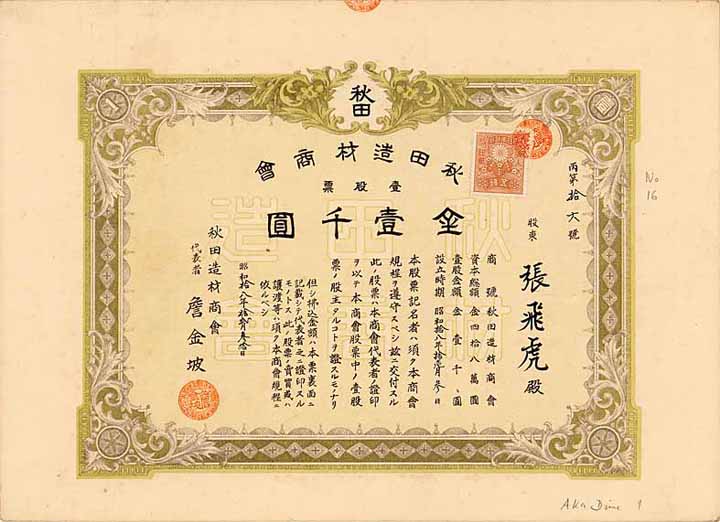 秋田
秋田造材商會
壹股票
金壹千圓
丙第拾六號
No
16
股東
張飛虎殿
商號秋田造材商會
資本總額金四拾八萬圓
壹股金額金壹千圓
設立時期 昭和拾八年拾貳月參日
本股票記名者ハ須ク本商會
規程ヲ遵守スベシ茲ニ交付スル
此ノ股票ハ本商會代表者ノ證印
ヲ以テ本商會股票中ノ壹股
票ノ股主タルコトヲ證スルモノナリ
但シ拂込金額ハ本票裏面ニ
記載シテ代表者之ニ證印スル
モノトス此ノ股票ノ賣買或ハ
讓渡等ハ須ク本商會規程ニ
依ルベシ
昭和拾八年拾貳月參拾日
秋田造材商會
代表者
詹金坡
秋田造材商會
Aka Dime 1